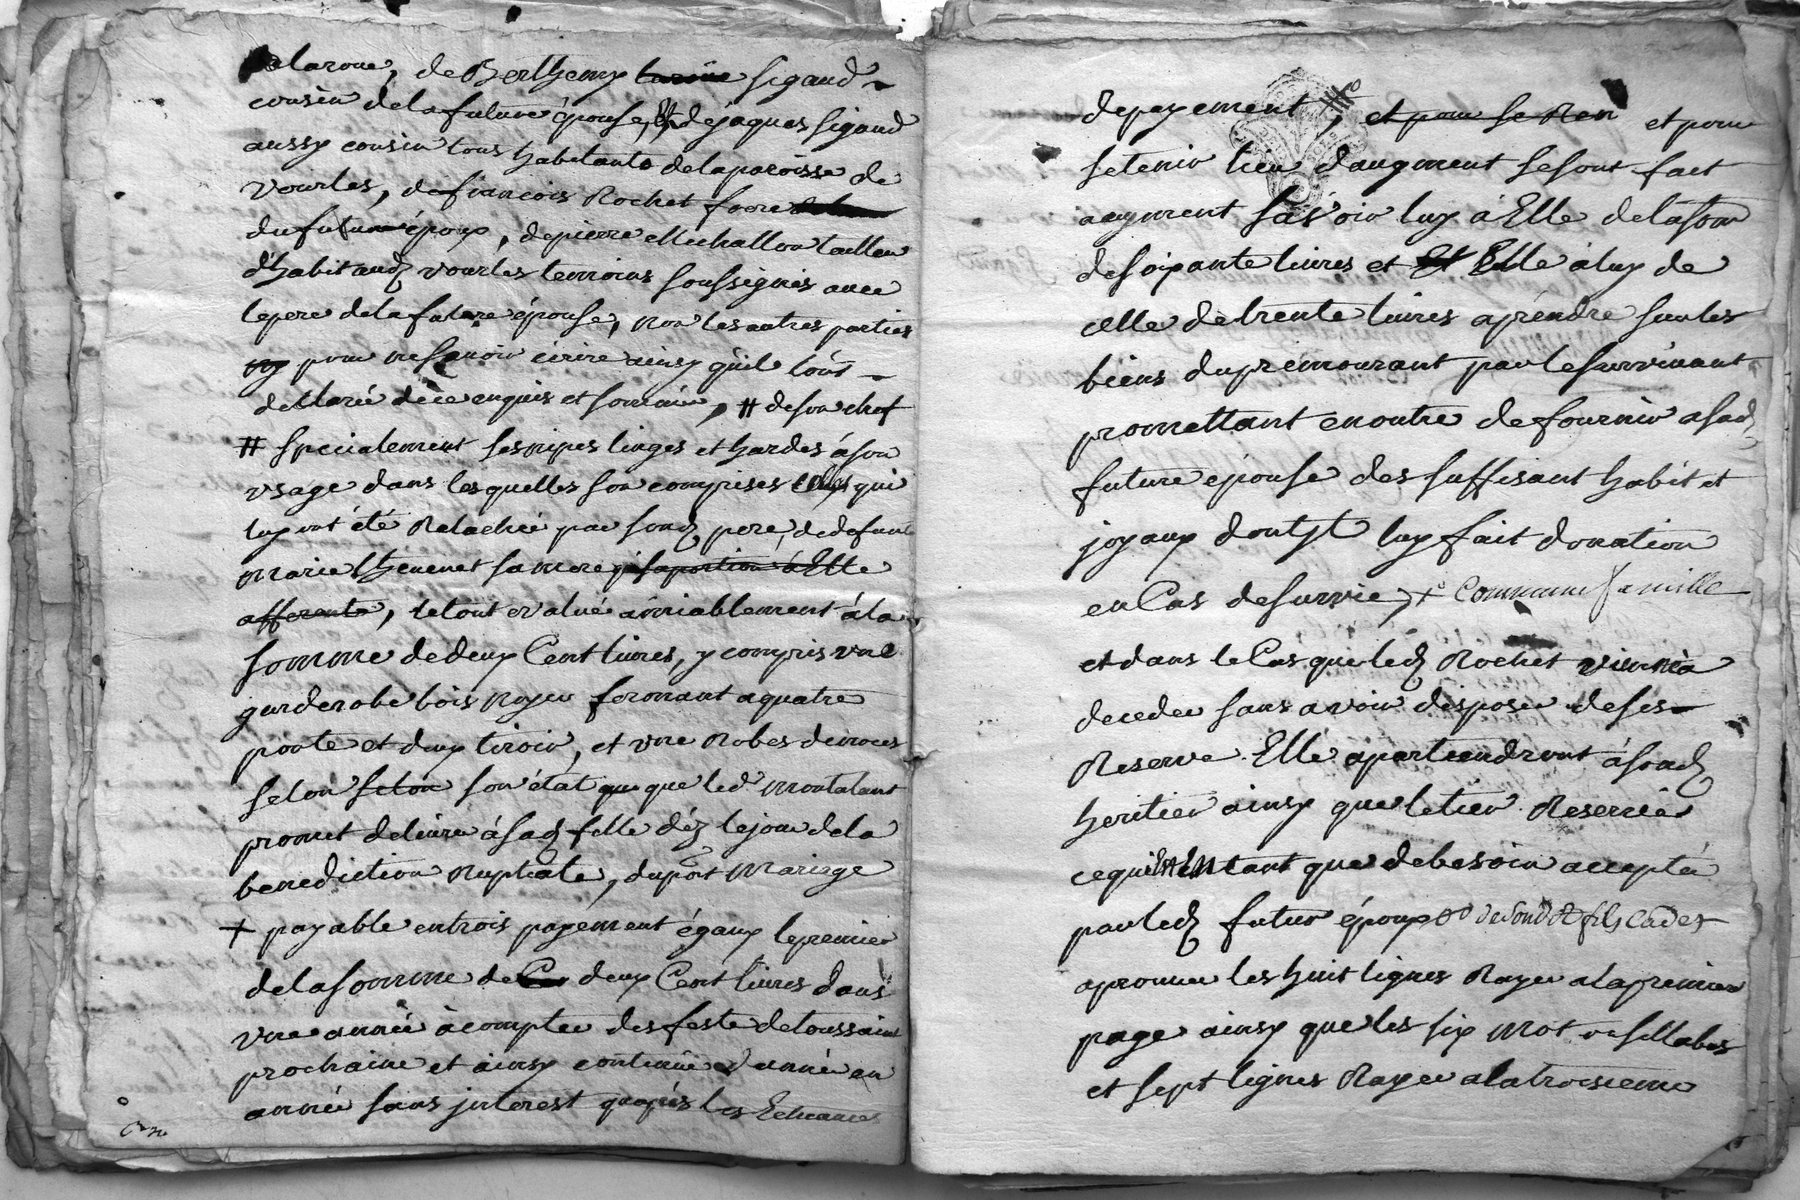 delaroue, de Berthemy laroüe Sigaud
cousin dela future épouse, et de jaques Sigaud
aussy cousin tous habitants delaparoisse de
Vourles, de francois Rochet frere
du futur époux, depierre Mechallon tailleur
d'habit aud Vourles temoins soussignés avec
lepere delafuture épouse, non lesautres parties
pour nesçavoir écrire ainsy qu'ils l'ont
declaré dece enquis et sommés, # deson chef
# specialement sesnipes linges et hardes áson
vsage dans lesquelles son comprises celles qui
luy ont été Relachée par sond pere, dedefunte
marie thevenet samere et saportion á Elle
afferente, letout evalué amiablement ála
somme dedeux Cent livres, y compris vne
garderobe bois noyer formant aquatre
porte et deux tiroir, et vne Robes denoces
selon selon son état que que led montalant
promet delivrer ásad fille déz lejour dela
benediction Nuptiale, dupnt Mariage
+ payable entrois payement égaux lepremier
delasomme de Ce deux Cent livres dans
vne année àcompter desfeste detoussaint
prochaine et ainsy continüer d'année en
année sans jnterest qu'après les Echeances
depayement, # et pour se Ren et pour
setenir lieu daugment sesont fait
augment sçavoir luy á Elle delasom
desoixante livres et Et Elle áluy de
celle detrente livres áprendre surles
biens duprémourant par lesurvivant
promettant enoutre defournir asad
future épouse des suffisant habit et
joyaux dont jl luy fait donation
en Cas desurvie, + Commune famille
et dans leCas que led Rochet viennea
deceder sans avoir disposer deses
Reserve Elle apartiendront ásond
heritier ainsy que letier Reservé
cequi est Entant que debesoin accepté
par led futur époux de sond et fils Cadet
aprouver les huit lignes Rayer alapremiere
page ainsy que les six mot ou sillabes
et sept lignes Rayer alatroisieme